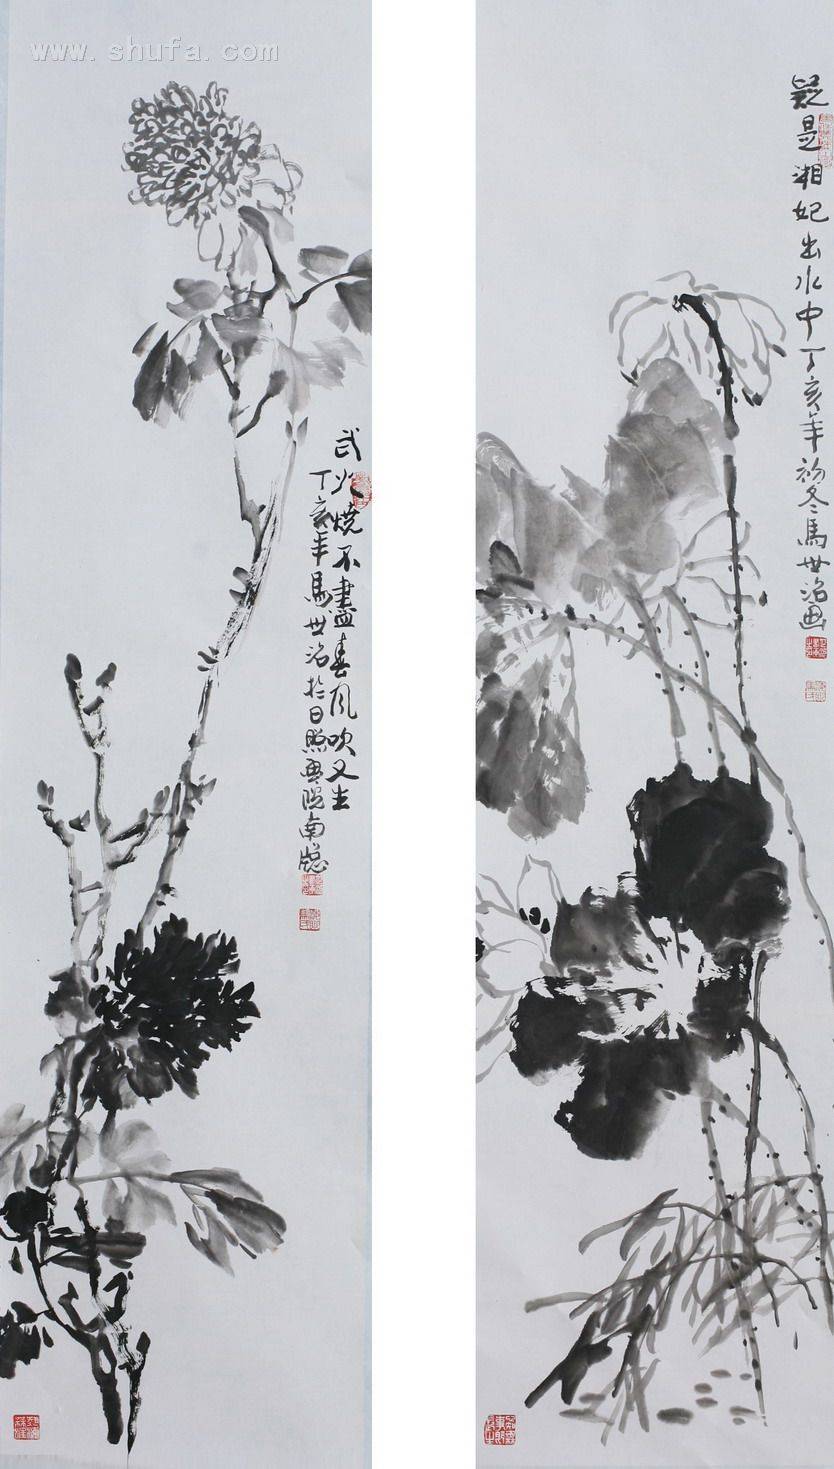 www.shufa.com
武火燒不盡春風吹又生
丁亥年馬世治於日照畫院南窓
疑是湘妃出水中丁亥年初冬馬世治画